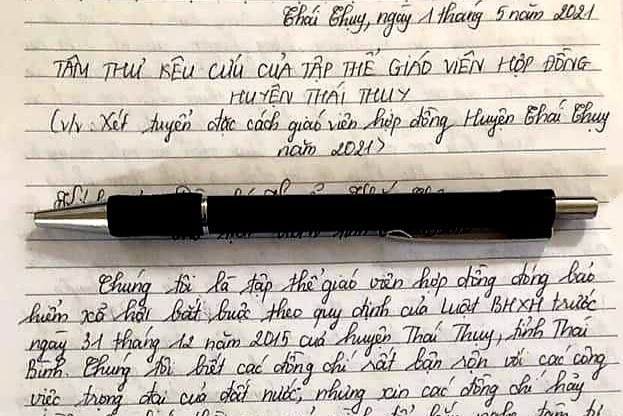 Thái Thụy, ngày 1 tháng 5 năm 2021
TÂM THƯ KÊU CỨU CỦA TẬP THỂ GIÁO VIÊN HỢP ĐỒNG
HUYỆN THÁI THỤY
(v/v: Xét tuyển đặc cách giáo viên hợp đồng Huyện Thái Thụy
năm 2021)
Chúng tôi là tập thể giáo viên hợp đồng đóng bảo
hiểm xã hội bắt buộc theo quy định của Luật BHXH trước
ngày 31 tháng 12 năm 2015 của huyện Thái Thụy, tỉnh Thái
Bình. Chúng tôi biết các đồng chí rất bận rộn với các công
việc trọng đại của đất nước, nhưng xin các đồng chí hãy